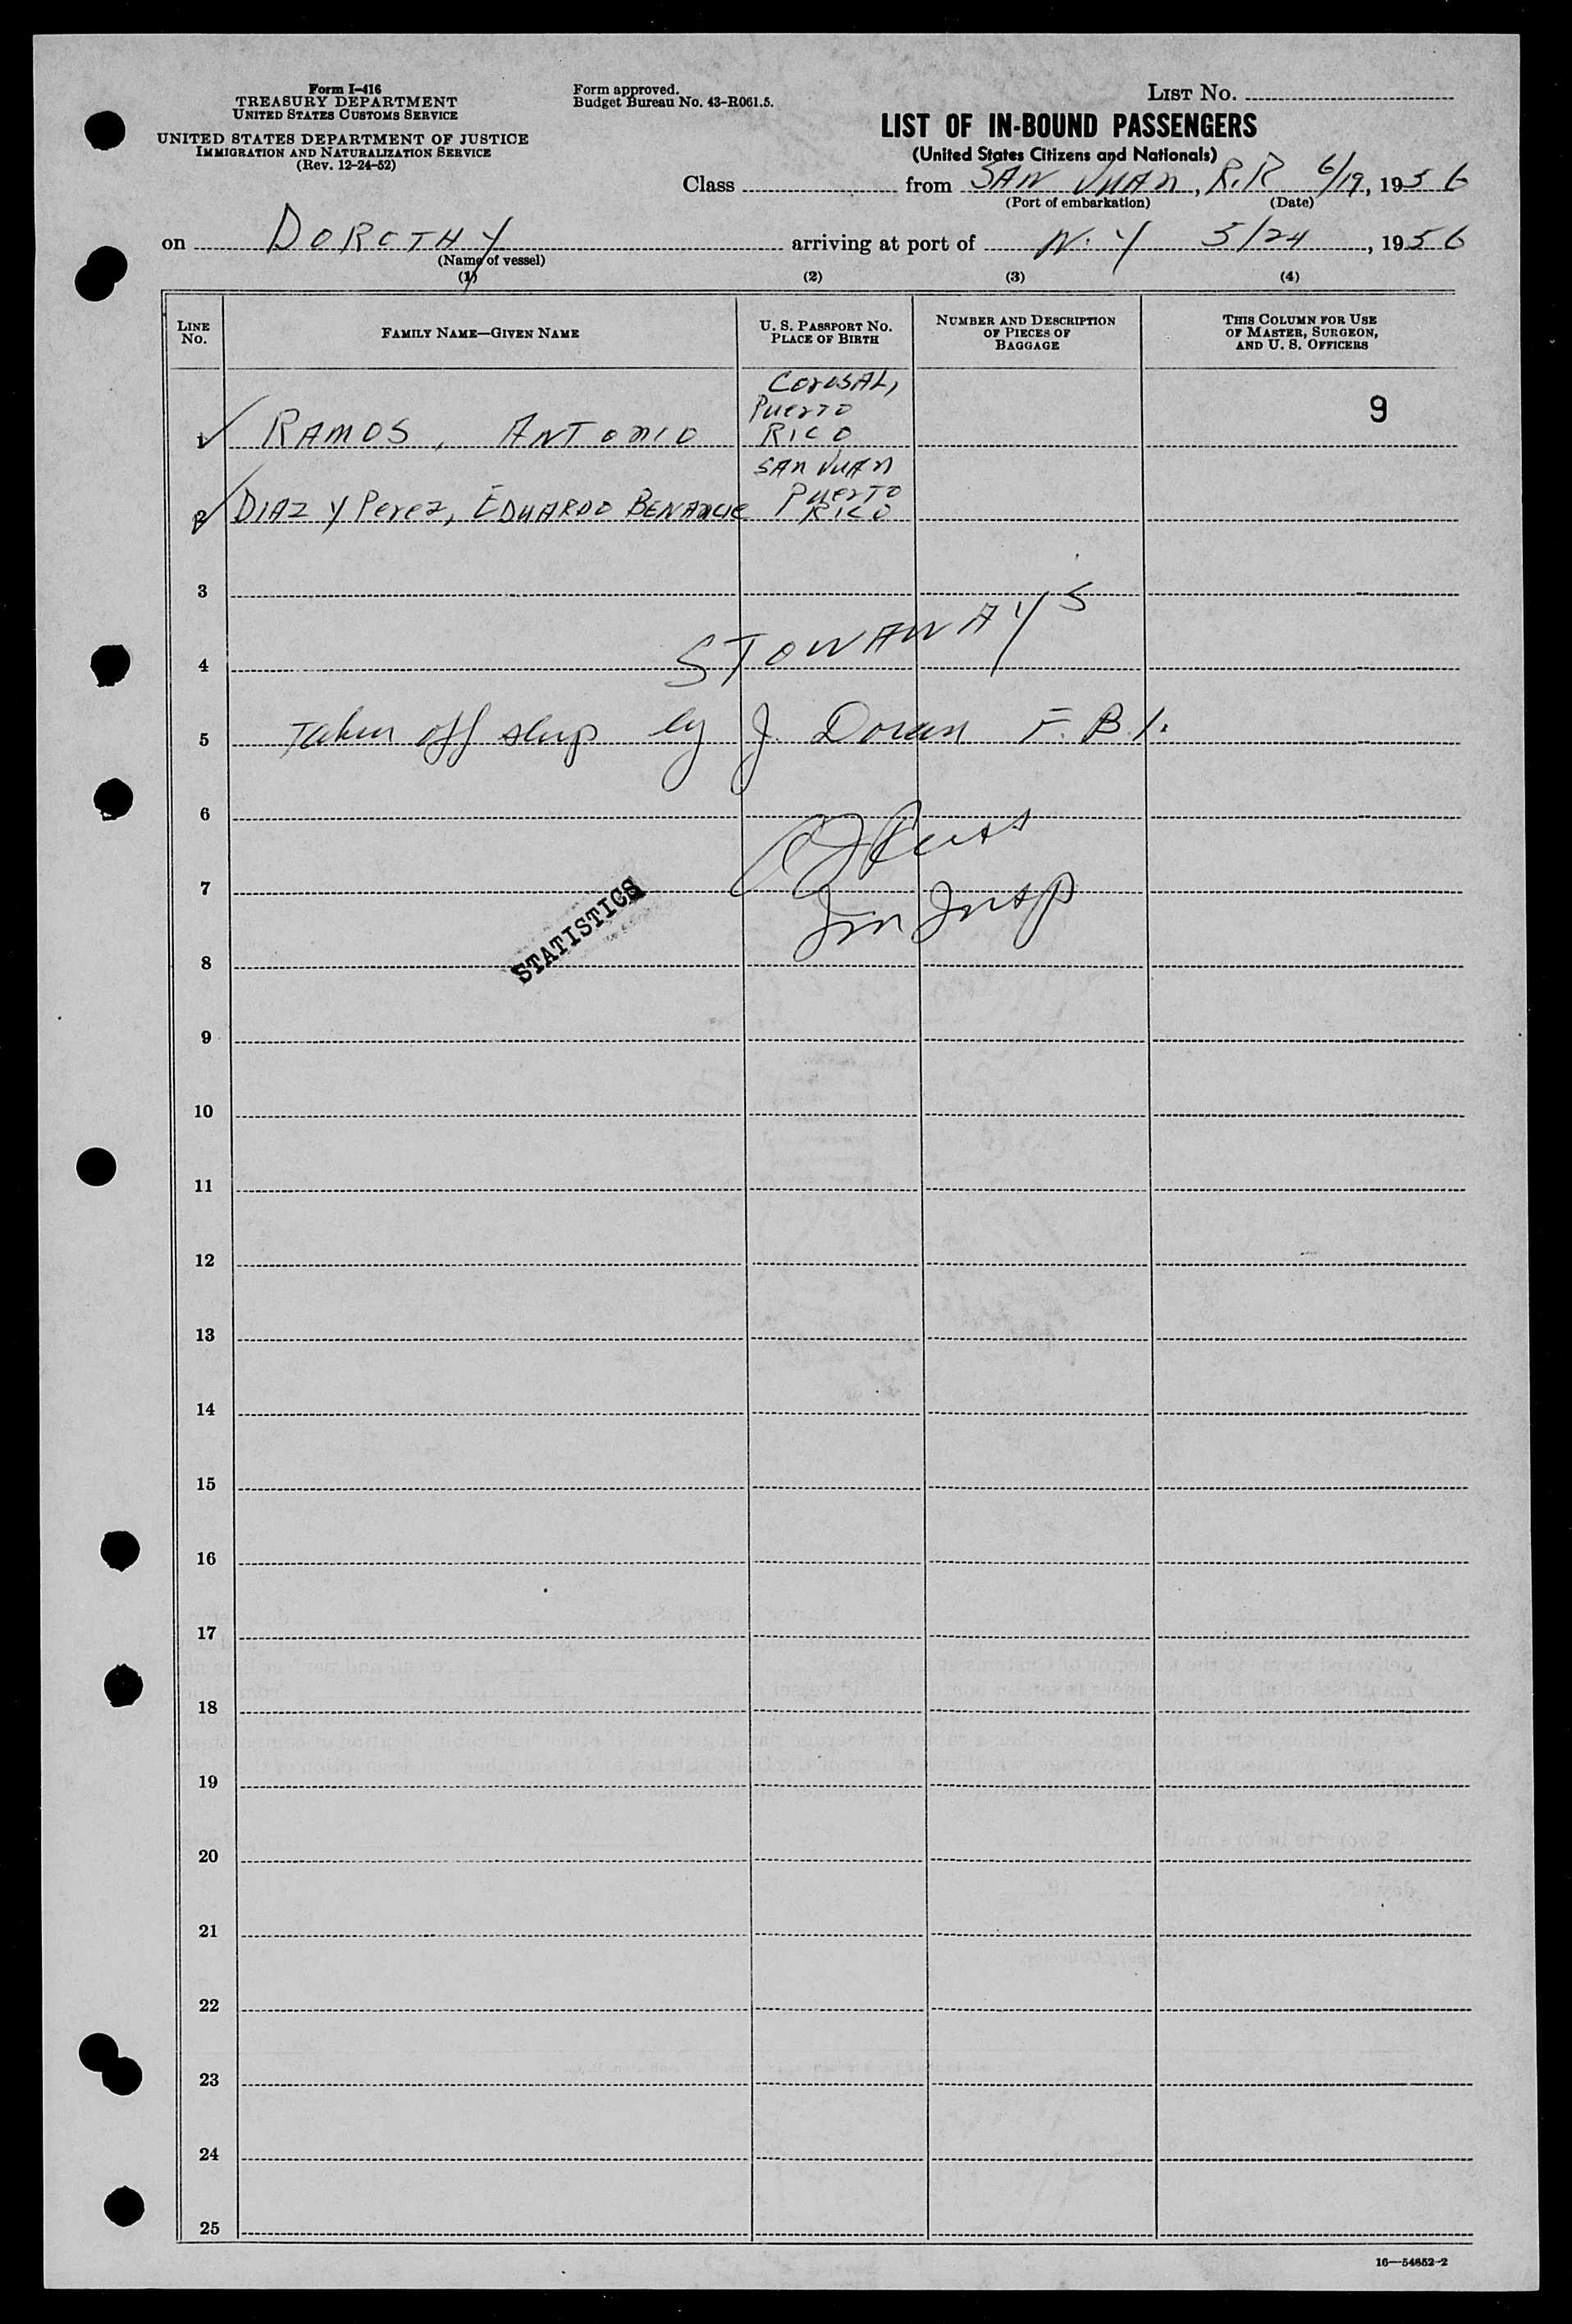 Form I-416
TREASURY DEPARTMENT
UNITED STATES CUSTOMS SERVICE
UNITED STATES DEPARTMENT OF JUSTICE
IMMIGRATION AND NATURALIZATION SERVICE
(Rev. 12-24-52)
Form approved.
Budget Bureau No. 43-R061.5.
LIST NO.
LIST OF IN-BOUND PASSENGERS
(United States Citizens and Nationals)
Class from SAN JUAN, P.R 6/19, 1956
(Port of embarkation) (Date)
on DOROTHY arriving at port of N.Y 5/24, 1956
(Name of vessel)
(1) (2) (3) (4)
LINE NO. FAMILY NAME—GIVEN NAME U. S. PASSPORT NO. PLACE OF BIRTH NUMBER AND DESCRIPTION OF PIECES OF BAGGAGE THIS COLUMN FOR USE OF MASTER, SURGEON, AND U. S. OFFICERS
1 RAMOS, ANTONIO COROSAL, PUERTO RICO 9
2 DIAZ Y Perez, EDUARDO SAN JUAN PUERTO RICO
3
STOWAWAYS
4
5 Taken off ship by J. Doran F.B.I.
6
7
Im Insp
STATISTICS
8
9
10
11
12
13
14
15
16
17
18
19
20
21
22
23
24
25
16—54652-2